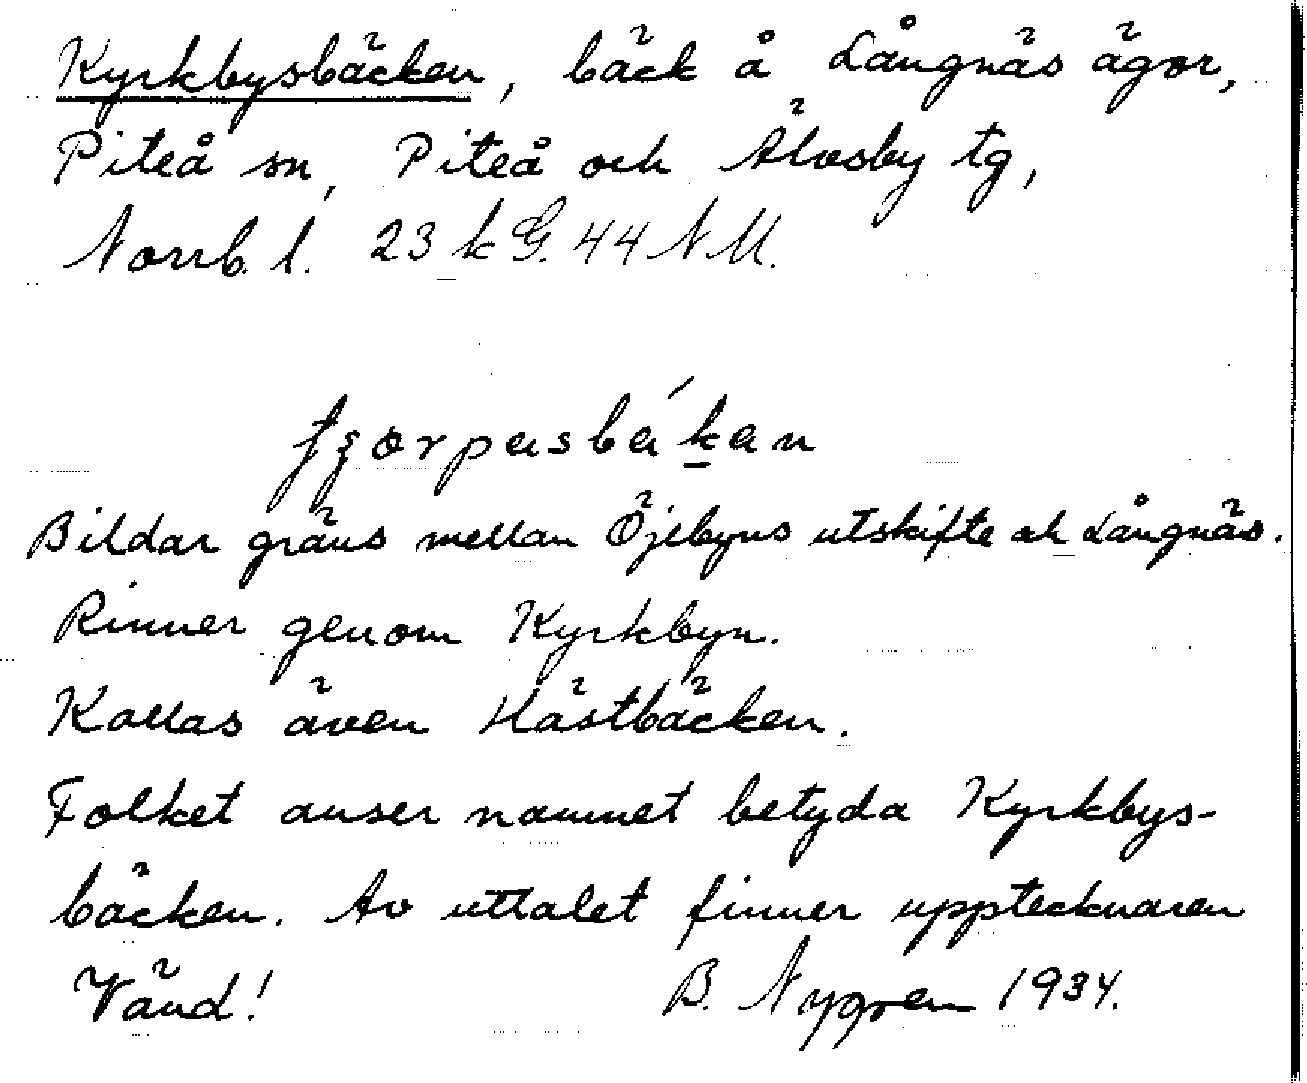 Kyrkbysbäcken, bäck å Långnäs ägor,
Piteå sn, Piteå och Älvsby tg,
Norrb. l. 23 k G. 44 N M.
Bildar gräns mellan Öjebyns utskifte och Långnäs.
Rinner genom Kyrkbyn.
Kallas även Hästbäcken.
Folket anser namnet betyda Kyrkbys-
bäcken. Av uttalet finner upptecknaren
Vänd! B. Nygren 1934.